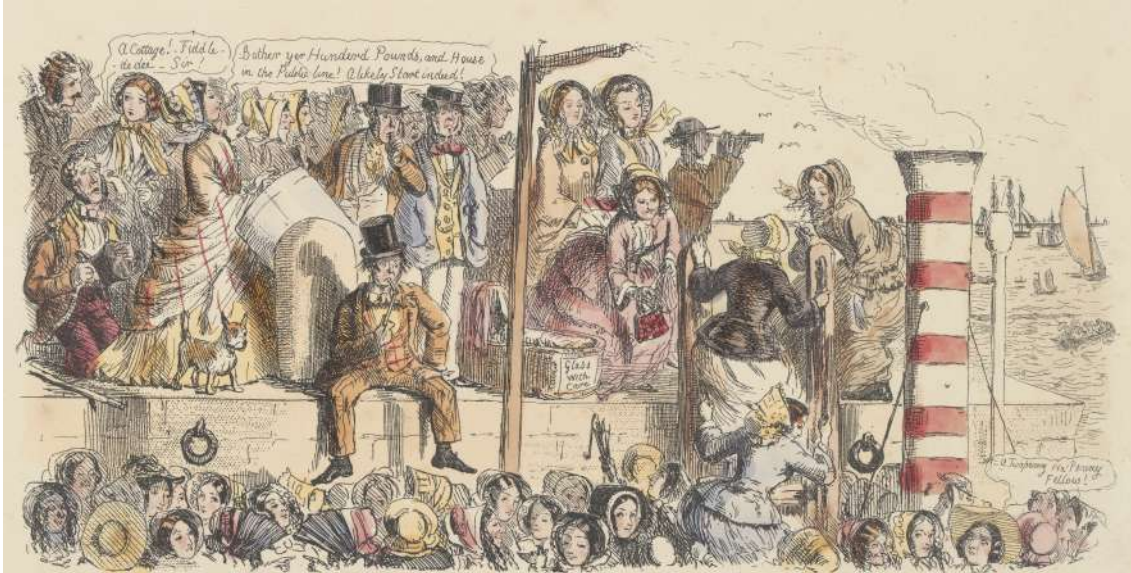 A Cottage! - Fiddle -
- de dee - Sir!
Bother yer Hunderd Pounds, and House
in the Public line! A likely Start indeed!
Glass
with
Care
A Twopenny Ha'Penny
Fellow!